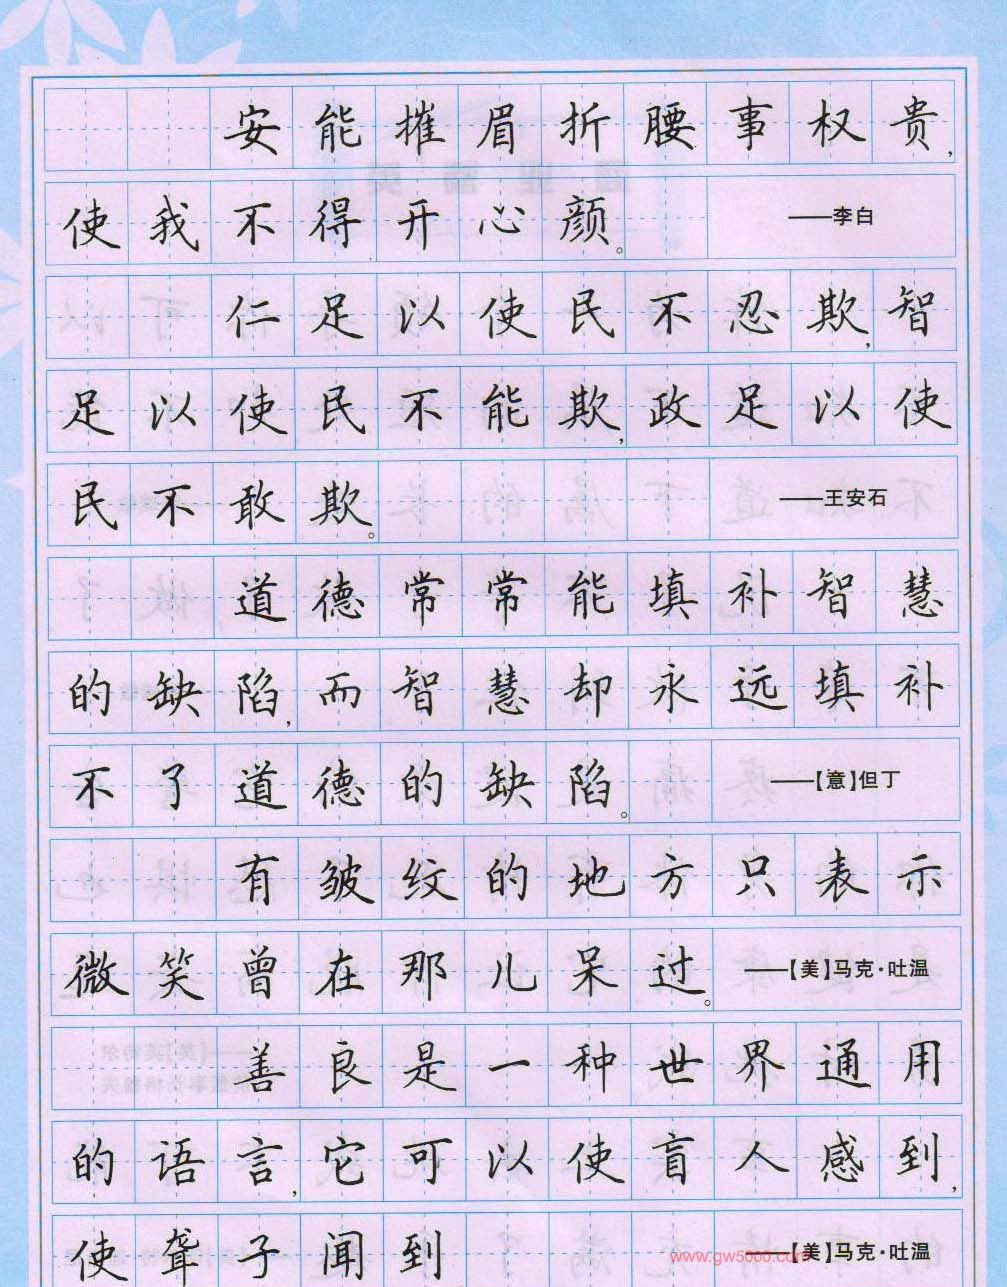 安能摧眉折腰事权贵，
使我不得开心颜。 ——李白
仁足以使民不忍欺，智
足以使民不能欺，政足以使
民不敢欺。 ——王安石
道德常常能填补智慧
的缺陷，而智慧却永远填补
不了道德的缺陷。 ——【意】但丁
有皱纹的地方只表示
微笑曾在那儿呆过。 ——【美】马克·吐温
善良是一种世界通用
的语言，它可以使盲人感到，
使聋子闻到 ——【美】马克·吐温
www.gw5000.com